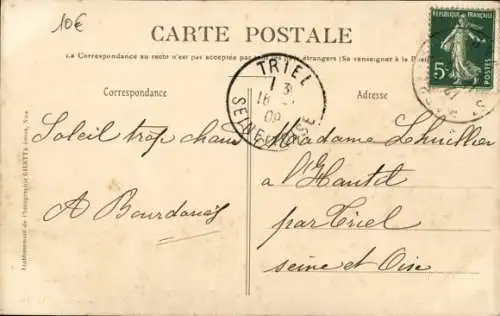 10€
CARTE POSTALE
La Correspondance au recto n'est pas acceptée par étrangers (Se renseigner à la
RÉPUBLIQUE FRANÇAISE
5
TRIEL
SEINE-ET-OISE
Correspondance
Adresse
Soleil trop chaud
A Bourdaneig
Madame Lehuillier
a l'Hautil
par Triel
seine et Oise
Etablissement de Photographie GILETTA